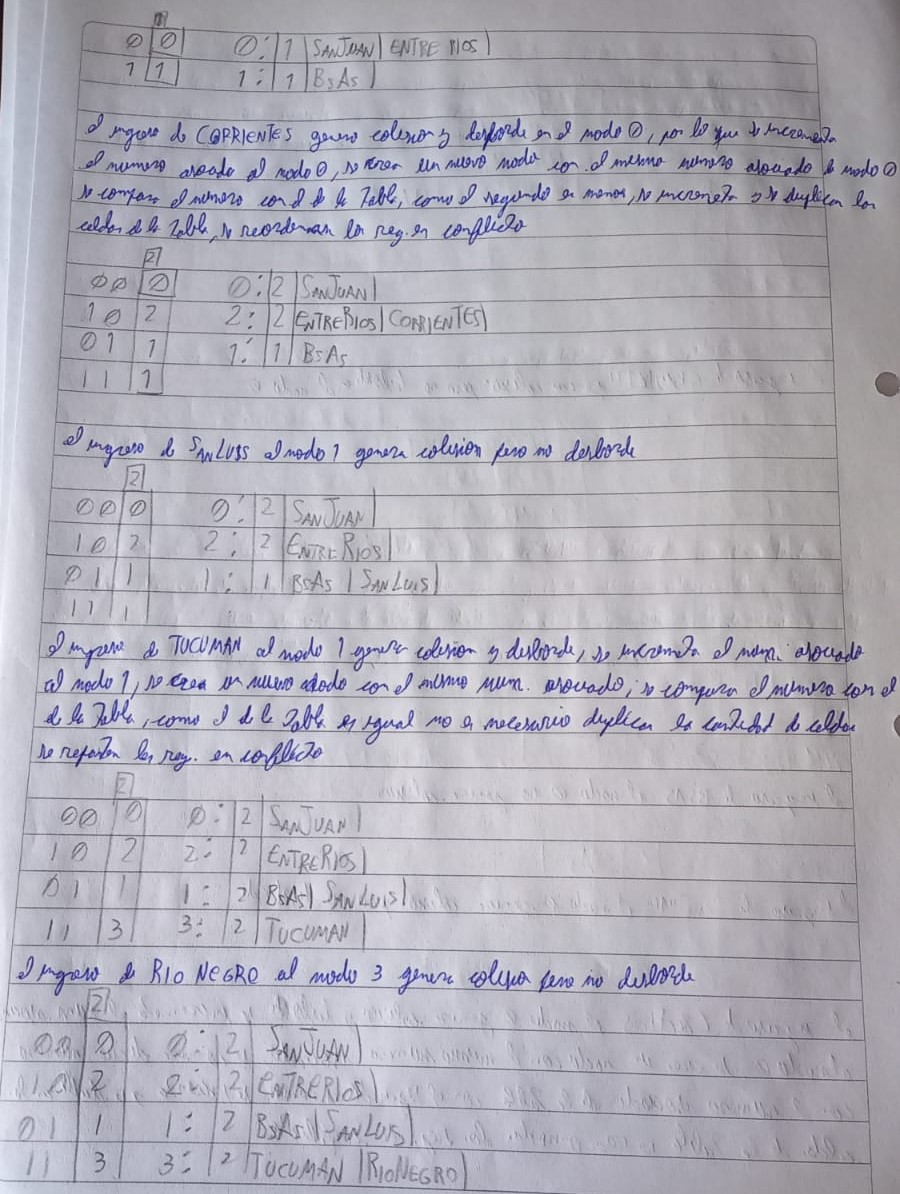 0
0 0 0: 1 SANJUAN ENTRE RIOS
1 1 1: 1 BSAS
El ingreso de CORRIENTES genera colision y desborde en el nodo 0, por lo que se incrementa
el numero asociado al nodo 0, se crea un nuevo nodo con el mismo numero asociado de nodo 0
se compara el numero con el de la Tabla, como el segundo es menor, se incrementa y se duplican las
celdas de la Tabla, se reordenan los reg. en conflicto
2
00 0 0: 2 SANJUAN
10 2 2: 2 ENTRERIOS CORRIENTES
01 1 1: 1 BSAS
11 1
el ingreso de SANLUIS al nodo 1 genera colision pero no desborde
2
00 0 0: 2 SANJUAN
10 2 2: 2 ENTRE RIOS
01 1 1: 1 BSAS SANLUIS
11 1
El ingreso de TUCUMAN al nodo 1 genera colision y desborde, se incrementa el num. asociado
al nodo 1, se crea un nuevo nodo con el mismo num. asociado, se compara el numero con el
de la Tabla, como el de la Tabla es igual no es necesario duplicar la cantidad de celdas
se reparten los reg. en conflicto
2
00 0 0: 2 SANJUAN
10 2 2: 2 ENTRERIOS
01 1 1: 2 BSAS SANLUIS
11 3 3: 2 TUCUMAN
El ingreso de RIO NEGRO al nodo 3 genera colision pero no desborde
2
00 0 0: 2 SANJUAN
10 2 2: 2 ENTRERIOS
01 1 1: 2 BSAS SANLUIS
11 3 3: 2 TUCUMAN RIONEGRO